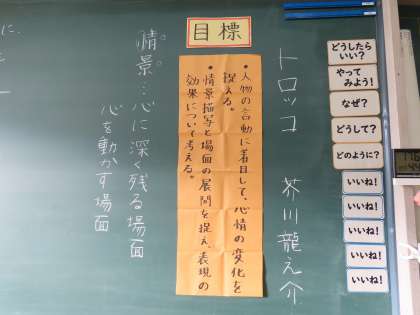 トロッコ 芥川龍之介
目標
•人物の言動に着目して、心情の変化を
捉える。
•情景描写と場面の展開を捉え、表現の
効果について考える。
情景…心に深く残る場面
心を動かす場面
どうしたら
いい？
やって
みよう！
なぜ？
どうして？
どのように？
いいね！
いいね！
いいね！
いいね！
いいね！